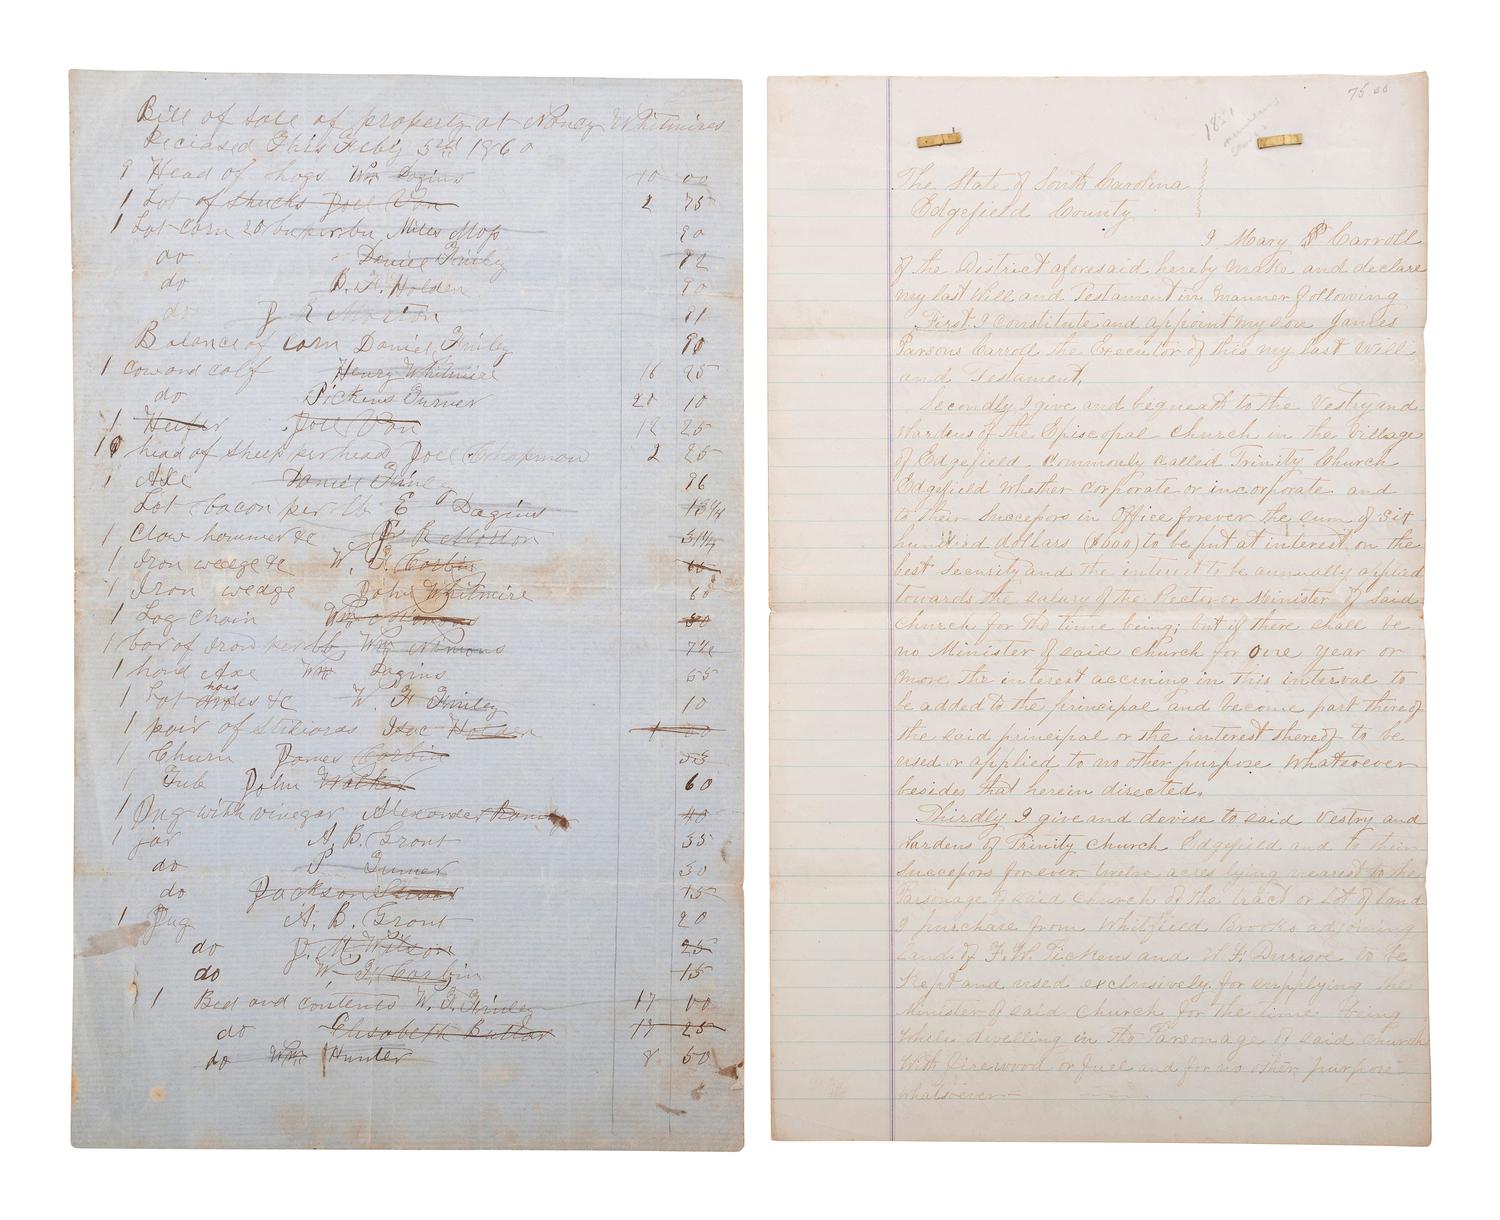 Bill of Sale of property at Nancy Whitmires
Deceased This Feby 3rd 1860
9 Head of hogs Wm Dagins 10 00
1 Lot of Shucks Joel Van 2 75
1 Lot Corn 20 bu per bu Miles Mop 90
do Daniel Finley 92
do B. F. Holden 90
do J R Morton 91
Balance of corn Daniel Finley 90
1 Cow and calf Henry Whitmire 16 25
do Pickens Turner 20 10
1 Heifer Joel Van 12 25
10 head of Sheep per head Joel Chapman 2 25
1 Axe Daniel Finley 96
Lot bacon per lb E Dagins 13 1/4
1 Claw hammer &c J R Motton
1 Iron wedge &c W. F. Corbin
1 Iron wedge John Whitmire 60
1 Log Chain Wm 30
1 bar of Iron per lb Wm Nimons
1 hand Axe Wm Dagins 55
1 Lot hoes &c W. F. Finley 10
1 pair of Isac Holden 1 00
1 Churn James Corbin 55
1 Tub John Walker 60
1 Jug with vinegar Alexander 40
1 jar A. B. Grant 35
do P Turner 30
do Jackson 15
1 Jug A. B. Grant 20
do J. M. Wilson 25
do W. F. Corbin 15
1 Bed and contents W. F. Finley 17 00
do Elisabeth Butlar 17 25
do Wm Hunter 8 50
75 00
The State of South Carolina
Edgefield County
I Mary P Carroll
of the District aforesaid hereby make and declare
my last Will and Testament in manner following
First, I constitute and appoint my son James
Parsons Carroll the Executor of this my last Will
and Testament,
Secondly, I give and bequeath to the Vestry and
Wardens of the Episcopal Church in the Village
of Edgefield commonly called Trinity Church
Edgefield whether corporate or incorporate and
to their Successors in Office forever the sum of Six
hundred dollars ($600) to be put at interest on the
best Security and the interest to be annually applied
towards the salary of the Rector or Minister of said
Church for the time being; but if there shall be
no Minister of said church for one year or
more, the interest accruing in this interval to
be added to the principal and become part thereof
the said principal or the interest thereof to be
used or applied to no other purpose whatsoever
besides that herein directed.
Thirdly I give and devise to said Vestry and
Wardens of Trinity Church Edgefield and to their
Successors forever twelve acres lying nearest to the
Parsonage of said Church of the tract or Lot of land
I purchase from Whitfield Brooks adjoining
Lands of F. W. Pickens and W. F. Durisoe to be
Kept and used exclusively for supplying the
Minister of said Church for the time being
while dwelling in the Parsonage of said Church
with firewood or fuel and for no other purpose
whatsoever =